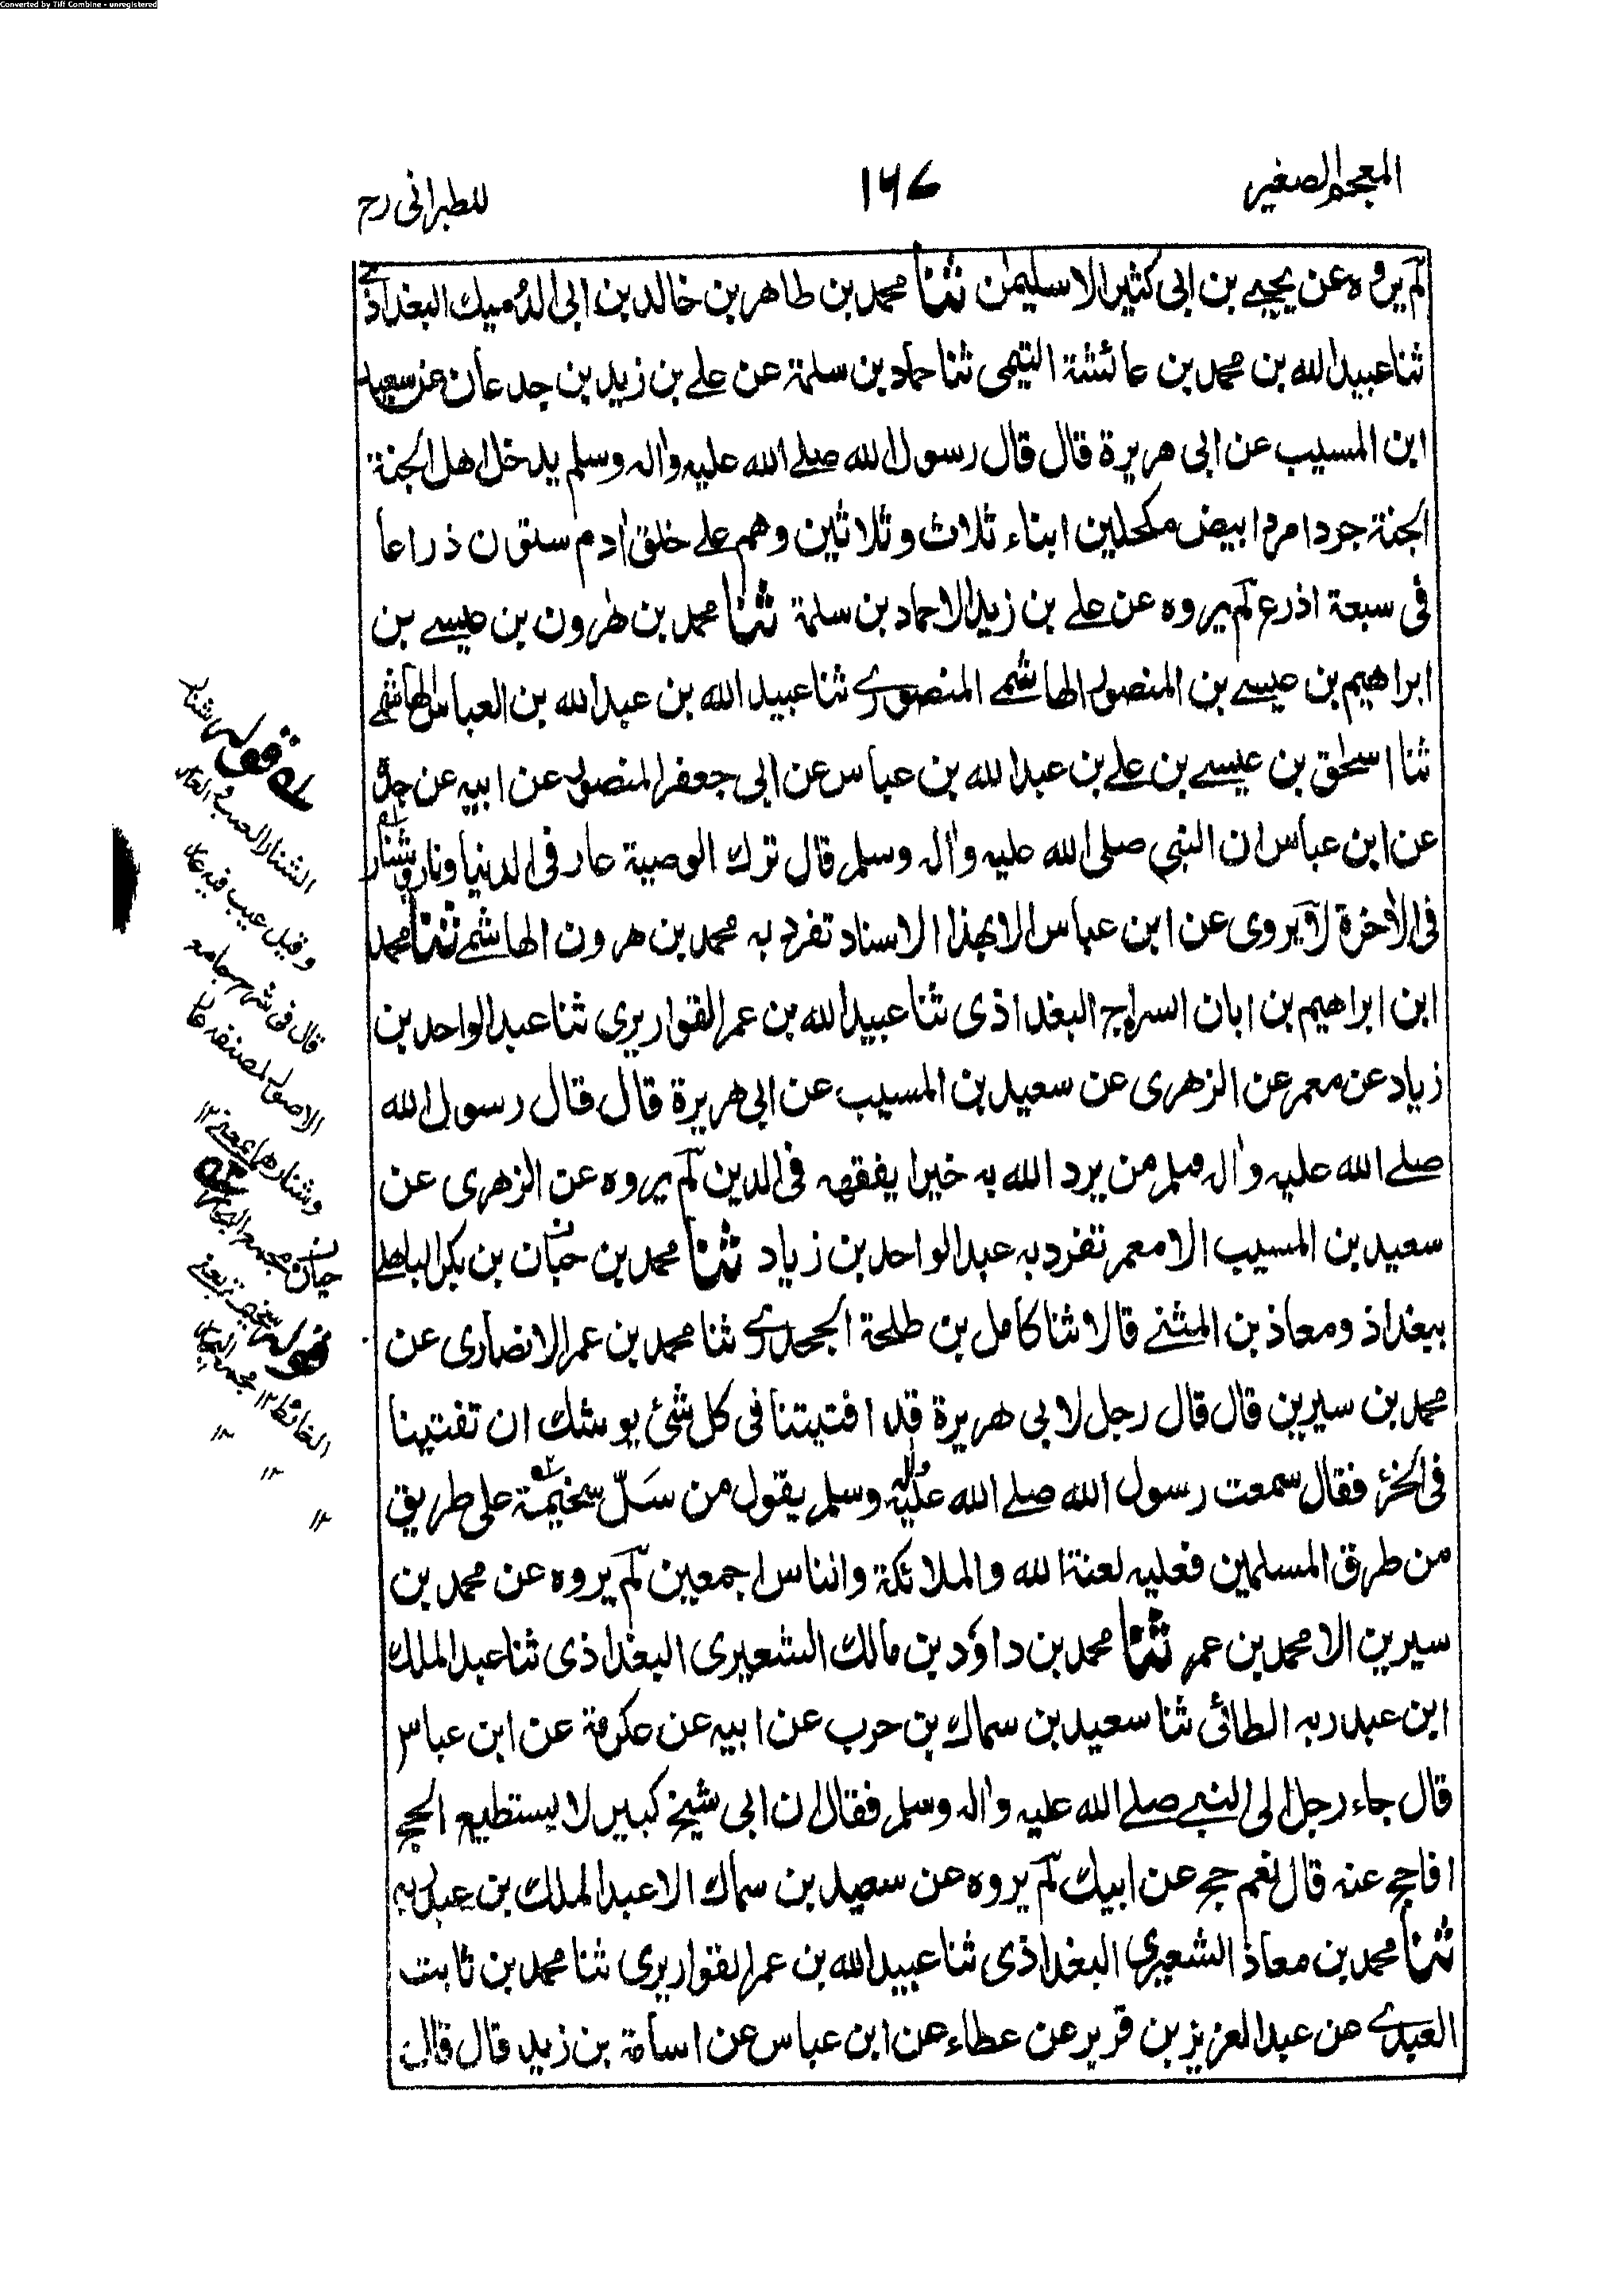 Converted by Tiff Combine - unregistered
المعجم الصغير
١٦٧
للطبرانى رح
لم يروه عن يحيى بن ابى كثير الا سليمٰن ثنا محمد بن طاهر بن خالد بن ابى الدميك البغداذے
ثنا عبيد الله بن محمد بن عائشة التيمى ثنا حماد بن سلمة عن علے بن زيد بن جدعان عن سعيد
ابن المسيب عن ابى هريرة قال قال رسول الله صلے الله عليه واٰله وسلم يدخل اهل الجنة
الجنة جردا مردا بيض مكحلين ابناء ثلاث وثلاثين وهم علے خلق اٰدم ستون ذراعا
فى سبعة اذرع لم يروه عن علے بن زيد الا حماد بن سلمة ثنا محمد بن هٰرون بن عيسے بن
ابراهيم بن عيسے بن المنصور الهاشمے المنصورے ثنا عبيد الله بن عبد الله بن العباس الهاشمے
ثنا اسحٰق بن عيسے بن علے بن عبد الله بن عباس عن ابى جعفر المنصور عن ابيه عن جده
عن ابن عباس ان النبي صلى الله عليه واٰله وسلم قال ترك الوصية عار فى الدنيا ونار وشنار
فى الاٰخرة لا يروى عن ابن عباس الا بهذا الاسناد تفرد به محمد بن هرون الهاشمے ثنا محمد
ابن ابراهيم بن ابان السراج البغداذى ثنا عبيد الله بن عمر القواريرى ثنا عبد الواحد بن
زياد عن معمر عن الزهرى عن سعيد بن المسيب عن ابى هريرة قال قال رسول الله
صلے الله عليه واٰله وسلم من يرد الله به خيرا يفقهه فى الدين لم يروه عن الزهرى عن
سعيد بن المسيب الا معمر تفرد به عبد الواحد بن زياد ثنا محمد بن حبان بن بكر الباهلے
ببغداذ ومعاذ بن المثنے قالا ثنا كامل بن طلحة الجحدرے ثنا محمد بن عمر الانصارى عن
محمد بن سيرين قال قال رجل لابى هريرة قد افتيتنا فى كل شئ يوشك ان تفتينا
فى الخرئ فقال سمعت رسول الله صلے الله عليه واٰله وسلم يقول من سَلّ سخيمة على طريق
من طرق المسلمين فعليه لعنة الله والملائكة والناس اجمعين لم يروه عن محمد بن
سيرين الا محمد بن عمر ثنا محمد بن داوٗد بن مالك الشعيرى البغداذى ثنا عبد الملك
ابن عبد ربه الطائى ثنا سعيد بن سماك بن حرب عن ابيه عن عكرمة عن ابن عباس
قال جاء رجل الى النبے صلے الله عليه واٰله وسلم فقال ان ابى شيخ كبير لا يستطيع الحج
افاحج عنه قال نعم حج عن ابيك لم يروه عن سعيد بن سماك الا عبد الملك بن عبد ربه
ثنا محمد بن معاذ الشعيرى البغداذى ثنا عبيد الله بن عمر القواريرى ثنا محمد بن ثابت
العبدے عن عبد العزيز بن قرير عن عطاء عن ابن عباس عن اسامة بن زيد قال قال
قوله شنار
الشنار العيب والعار
وقيل عيب فيه عار
قال فى شرح جامع
الاصول لمصنفه